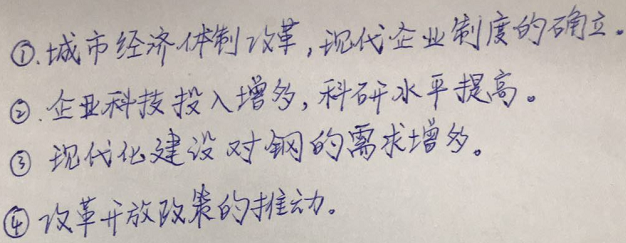 ①.城市经济体制改革,现代企业制度的确立。
②.企业科技投入增多,科研水平提高。
③ 现代化建设对钢的需求增多。
④ 改革开放政策的推动。